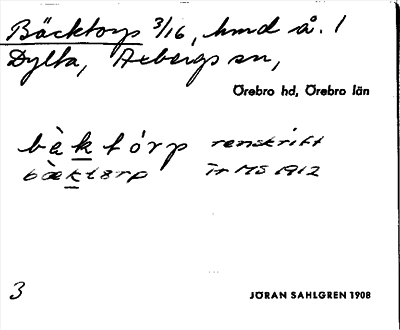 Bäcktorp 3/16, hmd å. 1
Dylta, Axbergs sn,
Örebro hd, Örebro län
bàktórp renskrift
bæktørp fr MS 1912
3
JÖRAN SAHLGREN 1908